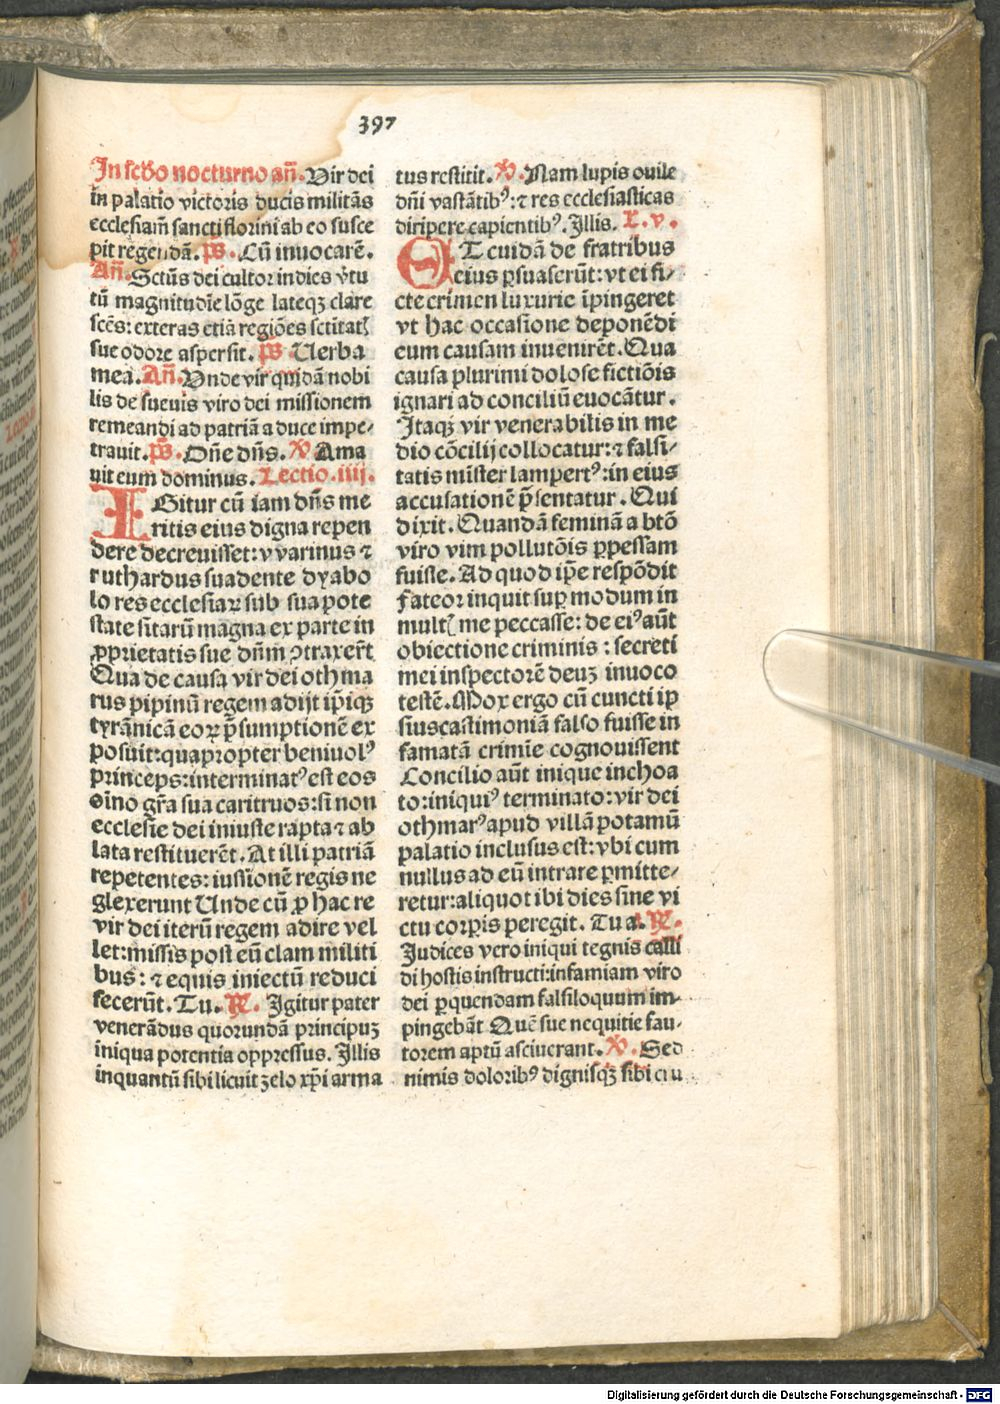 397
In scḋo nocturno añ. Vir dei
in palatio victoris ducis militãs
ecclesiam̃ sancti florini ab eo susce
pit regendã. p̃s. Cũ inuocarē.
Añ. Sctũs dei cultor indies v̾tu
tũ magnitudīe lõge lateqꝫ clare
scēs: exteras etiã regiões sctitatꝭ
sue odore aspersit. p̃s Uerba
mea. Añ. Vnde vir quidã nobi
lis de sueuis viro dei missionem
remeandi ad patriã a duce impe⸗
trauit. p̃s. Dñe dñs. ℣ Ama
uit eum dominus. Lectio .iiij.
IGitur cũ iam dñs me
ritis eius digna repen
dere decreuisset: vvarinus ⁊
ruthardus suadente dyabo
lo res ecclesiaꝝ sub sua pote
state sitarũ magna ex parte in
ꝓprietatis sue dñm ꝯtraxer̃t
Qua de causa vir dei othma
rus pipinũ regem adijt ip̄iqꝫ
tyrãnicã eoꝝ p̃sumptionē ex
posuit: quapropter beniuolꝰ
princeps: interminatꝰ est eos
oīno gr̃a sua carituros: si non
ecclesie dei iniuste rapta ⁊ ab
lata restituerēt. At illi patriã
repetentes: iussionē regis ne
glexerunt Unde cũ ꝓ hac re
vir dei iterũ regem adire vel
let: missis post eũ clam militi
bus: ⁊ equis iniectũ reduci
fecerũt. Tu. ℟. Igitur pater
venerãdus quorundã principuꝫ
iniqua potentia oppressus. Illis
inquantũ sibi licuit zelo xp̄i arma
tus restitit. ℣. Nam lupis ouile
dñi vastãtibꝰ: ⁊ res ecclesiasticas
diripere capientibꝰ. Illis. L. v.
AT cuidã de fratribus
eius ꝑsuaserũt: vt ei fi⸗
cte crimen luxurie īpingeret
vt hac occasione deponēdi
eum causam inuenirēt. Qua
causa plurimi dolose fictiõis
ignari ad conciliũ euocãtur.
Itaqꝫ vir venerabilis in me
dio cõcilij collocatur: ⁊ falsi⸗
tatis mīster lampertꝰ: in eius
accusationē p̃sentatur. Qui
dixit. Quandã feminã a btõ
viro vim pollutõis ꝑpessam
fuisse. Ad quod ip̄e respõdit
Fateor inquit suꝑ modum in
multꝭ me peccasse: de eiꝰ aũt
obiectione criminis: secreti
mei inspectorē deuꝫ inuoco
testē. Mox ergo cũ cuncti ip
sius castimoniã falso fuisse in
famatã crimīe cognouissent
Concilio aũt inique inchoa
to: iniquiꝰ terminato: vir dei
othmarꝰ apud villã potamũ
palatio inclusus est: vbi cum
nullus ad eũ intrare ꝑmitte⸗
retur: aliquot ibi dies sine vi
ctu corꝑis peregit. Tu a. ℟.
Judices vero iniqui tegnis calli
di hostis instructi: infamiam viro
dei ꝑ quendam falsiloquum im⸗
pingebãt Quē sue nequitie fau⸗
torem aptũ asciuerant. ℣. Sed
nimis doloribꝰ dignisqꝫ sibi
Digitalisierung gefördert durch die Deutsche Forschungsgemeinschaft - DFG